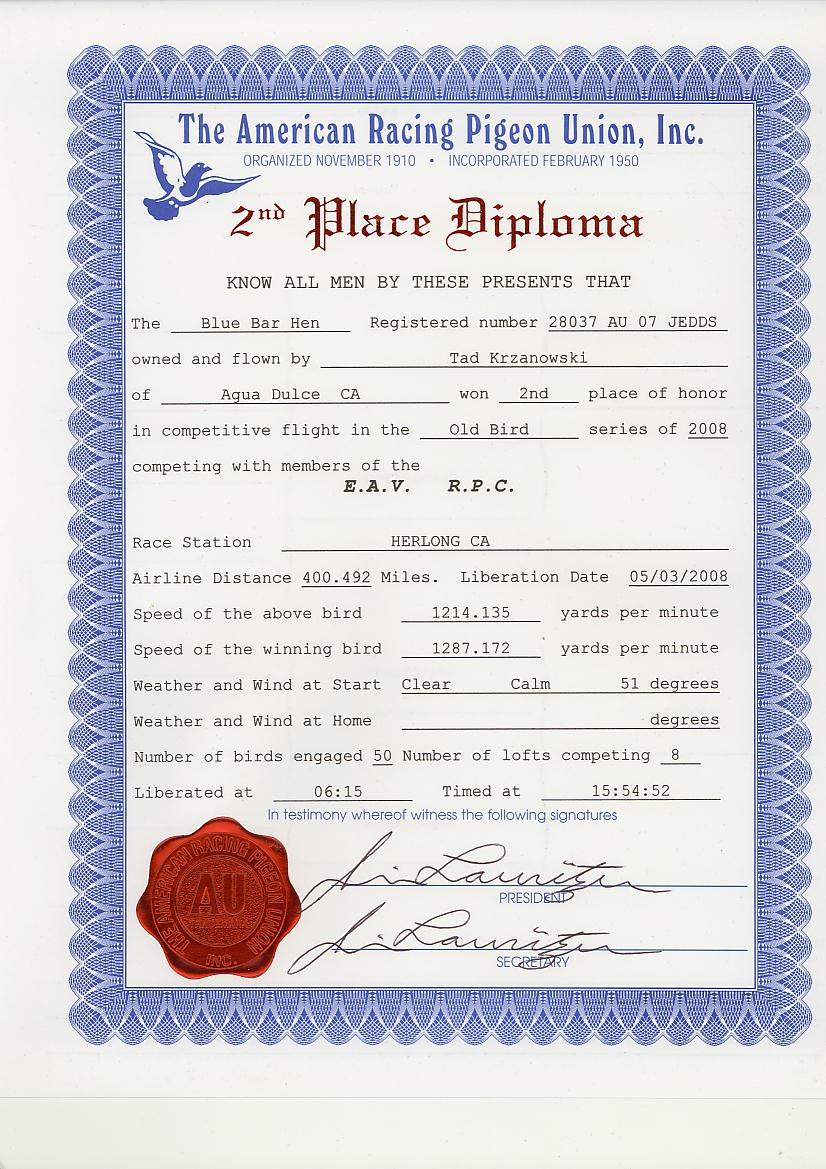 The American Racing Pigeon Union, Inc.
ORGANIZED NOVEMBER 1910 • INCORPORATED FEBRUARY 1950
2nd Place Diploma
KNOW ALL MEN BY THESE PRESENTS THAT
The Blue Bar Hen Registered number 28037 AU 07 JEDDS
owned and flown by Tad Krzanowski
of Agua Dulce CA won 2nd place of honor
in competitive flight in the Old Bird series of 2008
competing with members of the
E.A.V. R.P.C.
Race Station HERLONG CA
Airline Distance 400.492 Miles. Liberation Date 05/03/2008
Speed of the above bird 1214.135 yards per minute
Speed of the winning bird 1287.172 yards per minute
Weather and Wind at Start Clear Calm 51 degrees
Weather and Wind at Home degrees
Number of birds engaged 50 Number of lofts competing 8
Liberated at 06:15 Timed at 15:54:52
In testimony whereof witness the following signatures
PRESIDENT
SECRETARY
THE AMERICAN RACING PIGEON UNION
AU
INC.